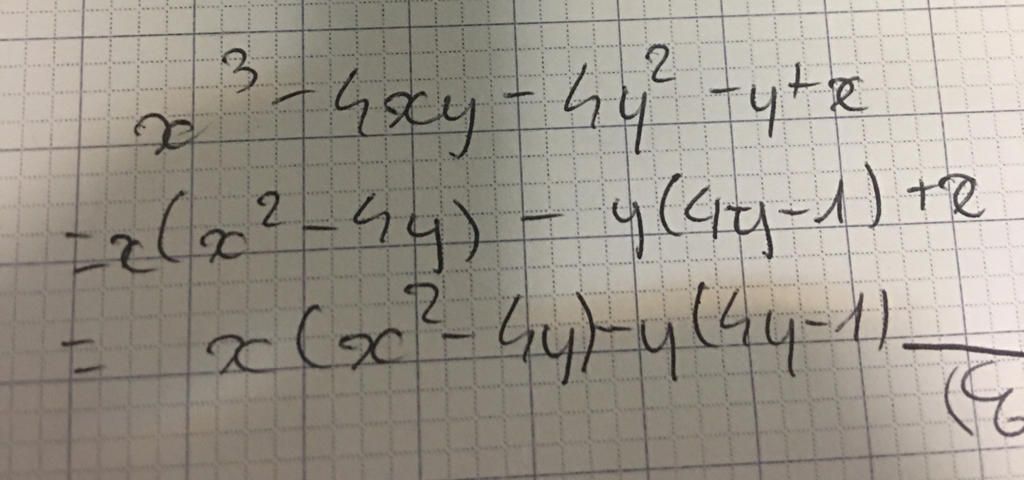 x³ - 4xy - 4y² - y + x
= x(x² - 4y) - y(4y - 1) + x
= x(x² - 4y) - y(4y - 1)